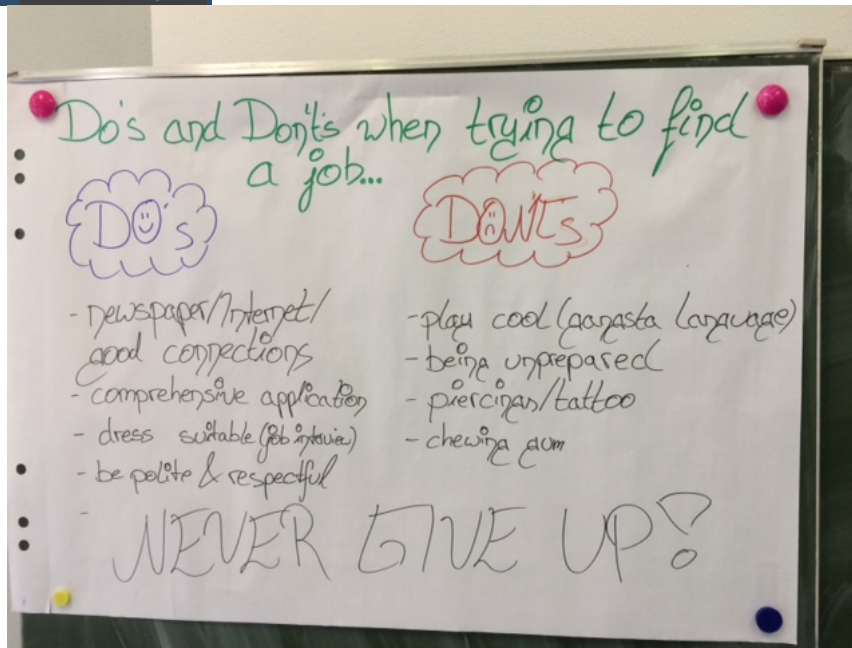 Do's and Don't's when trying to find
a job...
DO's
DON'Ts
- newspaper/Internet/
good connections
- comprehensive application
- dress suitable (job interview)
- be polite & respectful
-
- play cool (gangsta language)
- being unprepared
- piercings/tattoo
- chewing gum
NEVER GIVE UP!